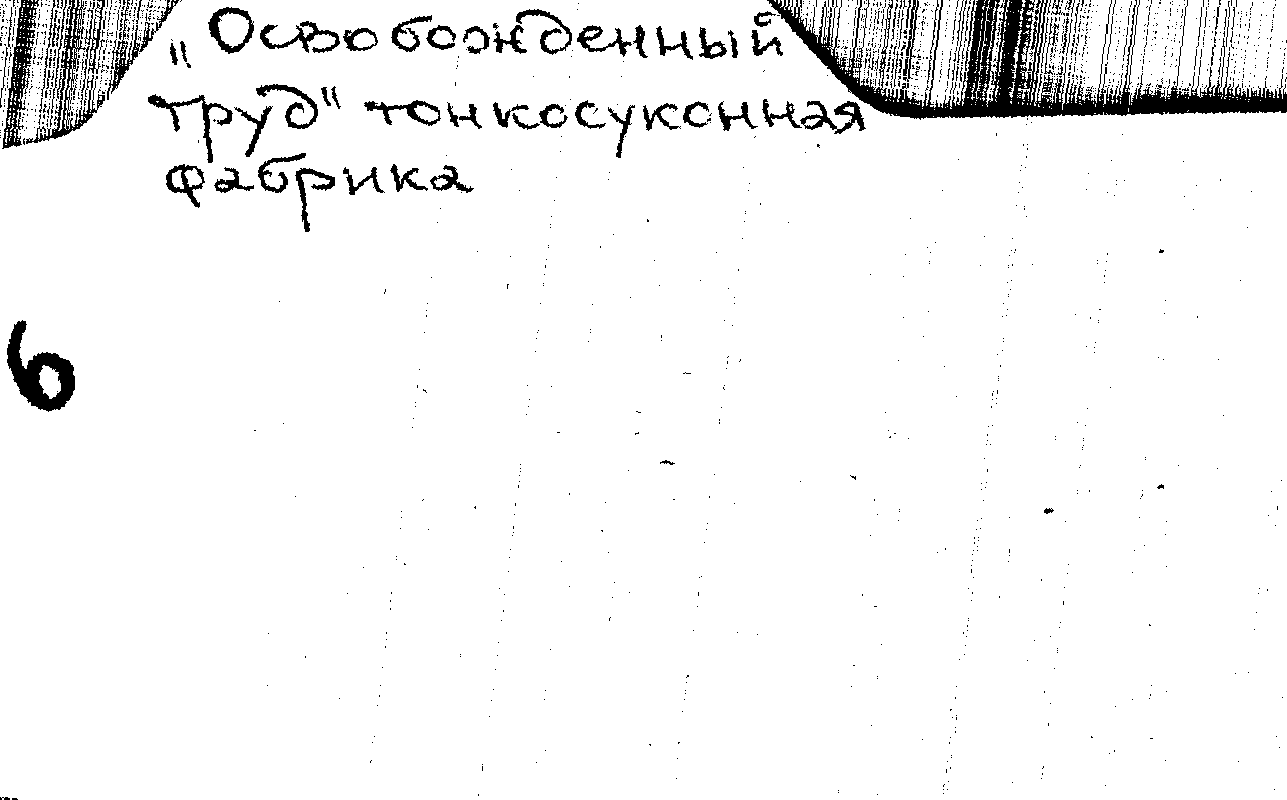 "Освобожденный
труд" тонкосуконная
фабрика
6